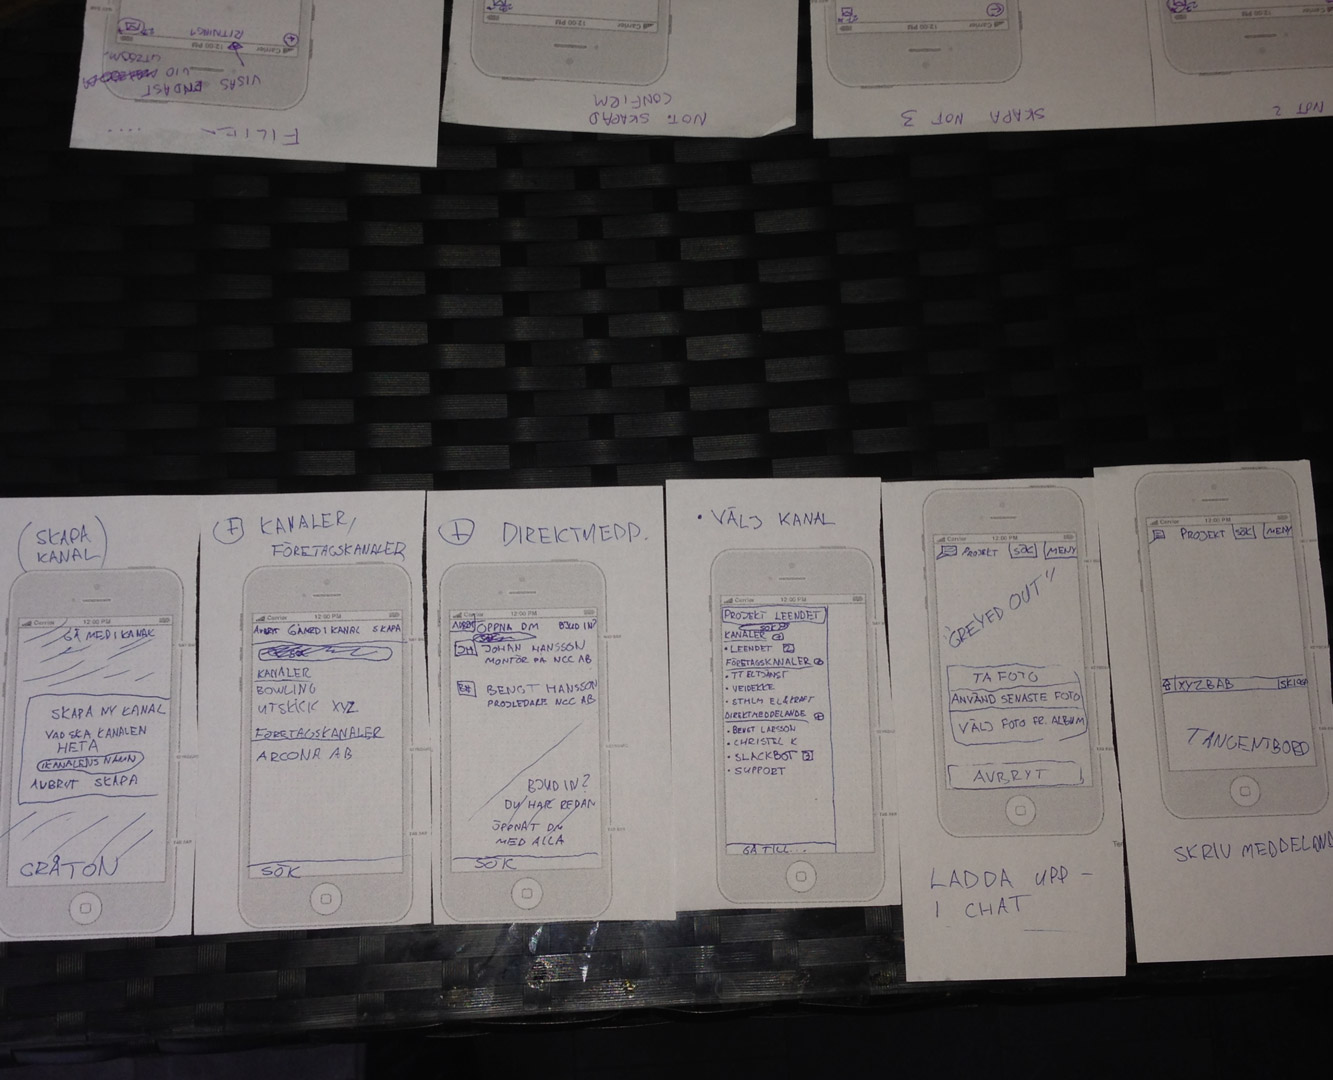 Carrier
12:00 PM
RITNING1
VISAS ENDAST
UTGSM.
Carrier
12:00 PM
NOT. SKAPAD
CONFIRM
Carrier
12:00 PM
SKAPA NOT 3
Carrier
12:00 PM
NOT 2
(SKAPA
KANAL)
Carrier
12:00 PM
GÅ MED I KANAL
SKAPA NY KANAL
VAD SKA KANALEN
HETA
KANALENS NAMN
AVBRYT SKAPA
GRÅTON
+ KANALER,
FÖRETAGSKANALER
Carrier
12:00 PM
AVBRYT GÅ MED I KANAL SKAPA
KANALER
BOWLING
UTSKICK XYZ
FÖRETAGSKANALER
ARCONA AB
SÖK
+ DIREKTMEDD.
Carrier
12:00 PM
AVBRYT ÖPPNA DM BJUD IN?
JH JOHAN HANSSON
MONTÖR PÅ NCC AB
BH BENGT HANSSON
PROJLEDARE NCC AB
BJUD IN?
DU HAR REDAN
ÖPPNAT DM
MED ALLA
SÖK
• VÄLJ KANAL
Carrier
12:00 PM
PROJEKT LEENDET
KANALER +
• LEENDET 2
FÖRETAGSKANALER +
• TT ELTJÄNST
• VEIDEKKE
• STHLM EL & KRAFT
DIREKTMEDDELANDE +
• BENGT LARSSON
• CHRISTEL K
• SLACKBOT 3
• SUPPORT
GÅ TILL...
Carrier
12:00 PM
PROJEKT SÖK MENY
"GREYED OUT"
TA FOTO
ANVÄND SENASTE FOTO
VÄLJ FOTO FR. ALBUM
AVBRYT
LADDA UPP -
I CHAT
Carrier
12:00 PM
PROJEKT SÖK MENY
XYZBAB SKICKA
TANGENTBORD
SKRIV MEDDELAND